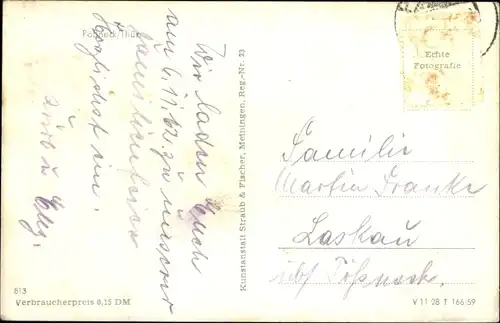 Pößneck/Thür.
Wir laden Euch
am 6.11.62 zu unserer
Familienfeier
Herzlichst ein.
Kunstanstalt Straub & Fischer, Meiningen, Reg.-Nr. 23
Echte
Fotografie
Familie
Martin Franke
Laskau
über Pößneck.
813
Verbraucherpreis 0,15 DM
V 11 28 T 166/59